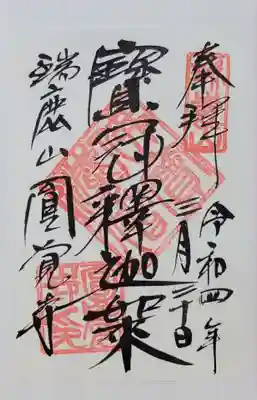 奉拝
令和四年
三月三十日
寳冠釋迦架
瑞鹿山圓覚寺